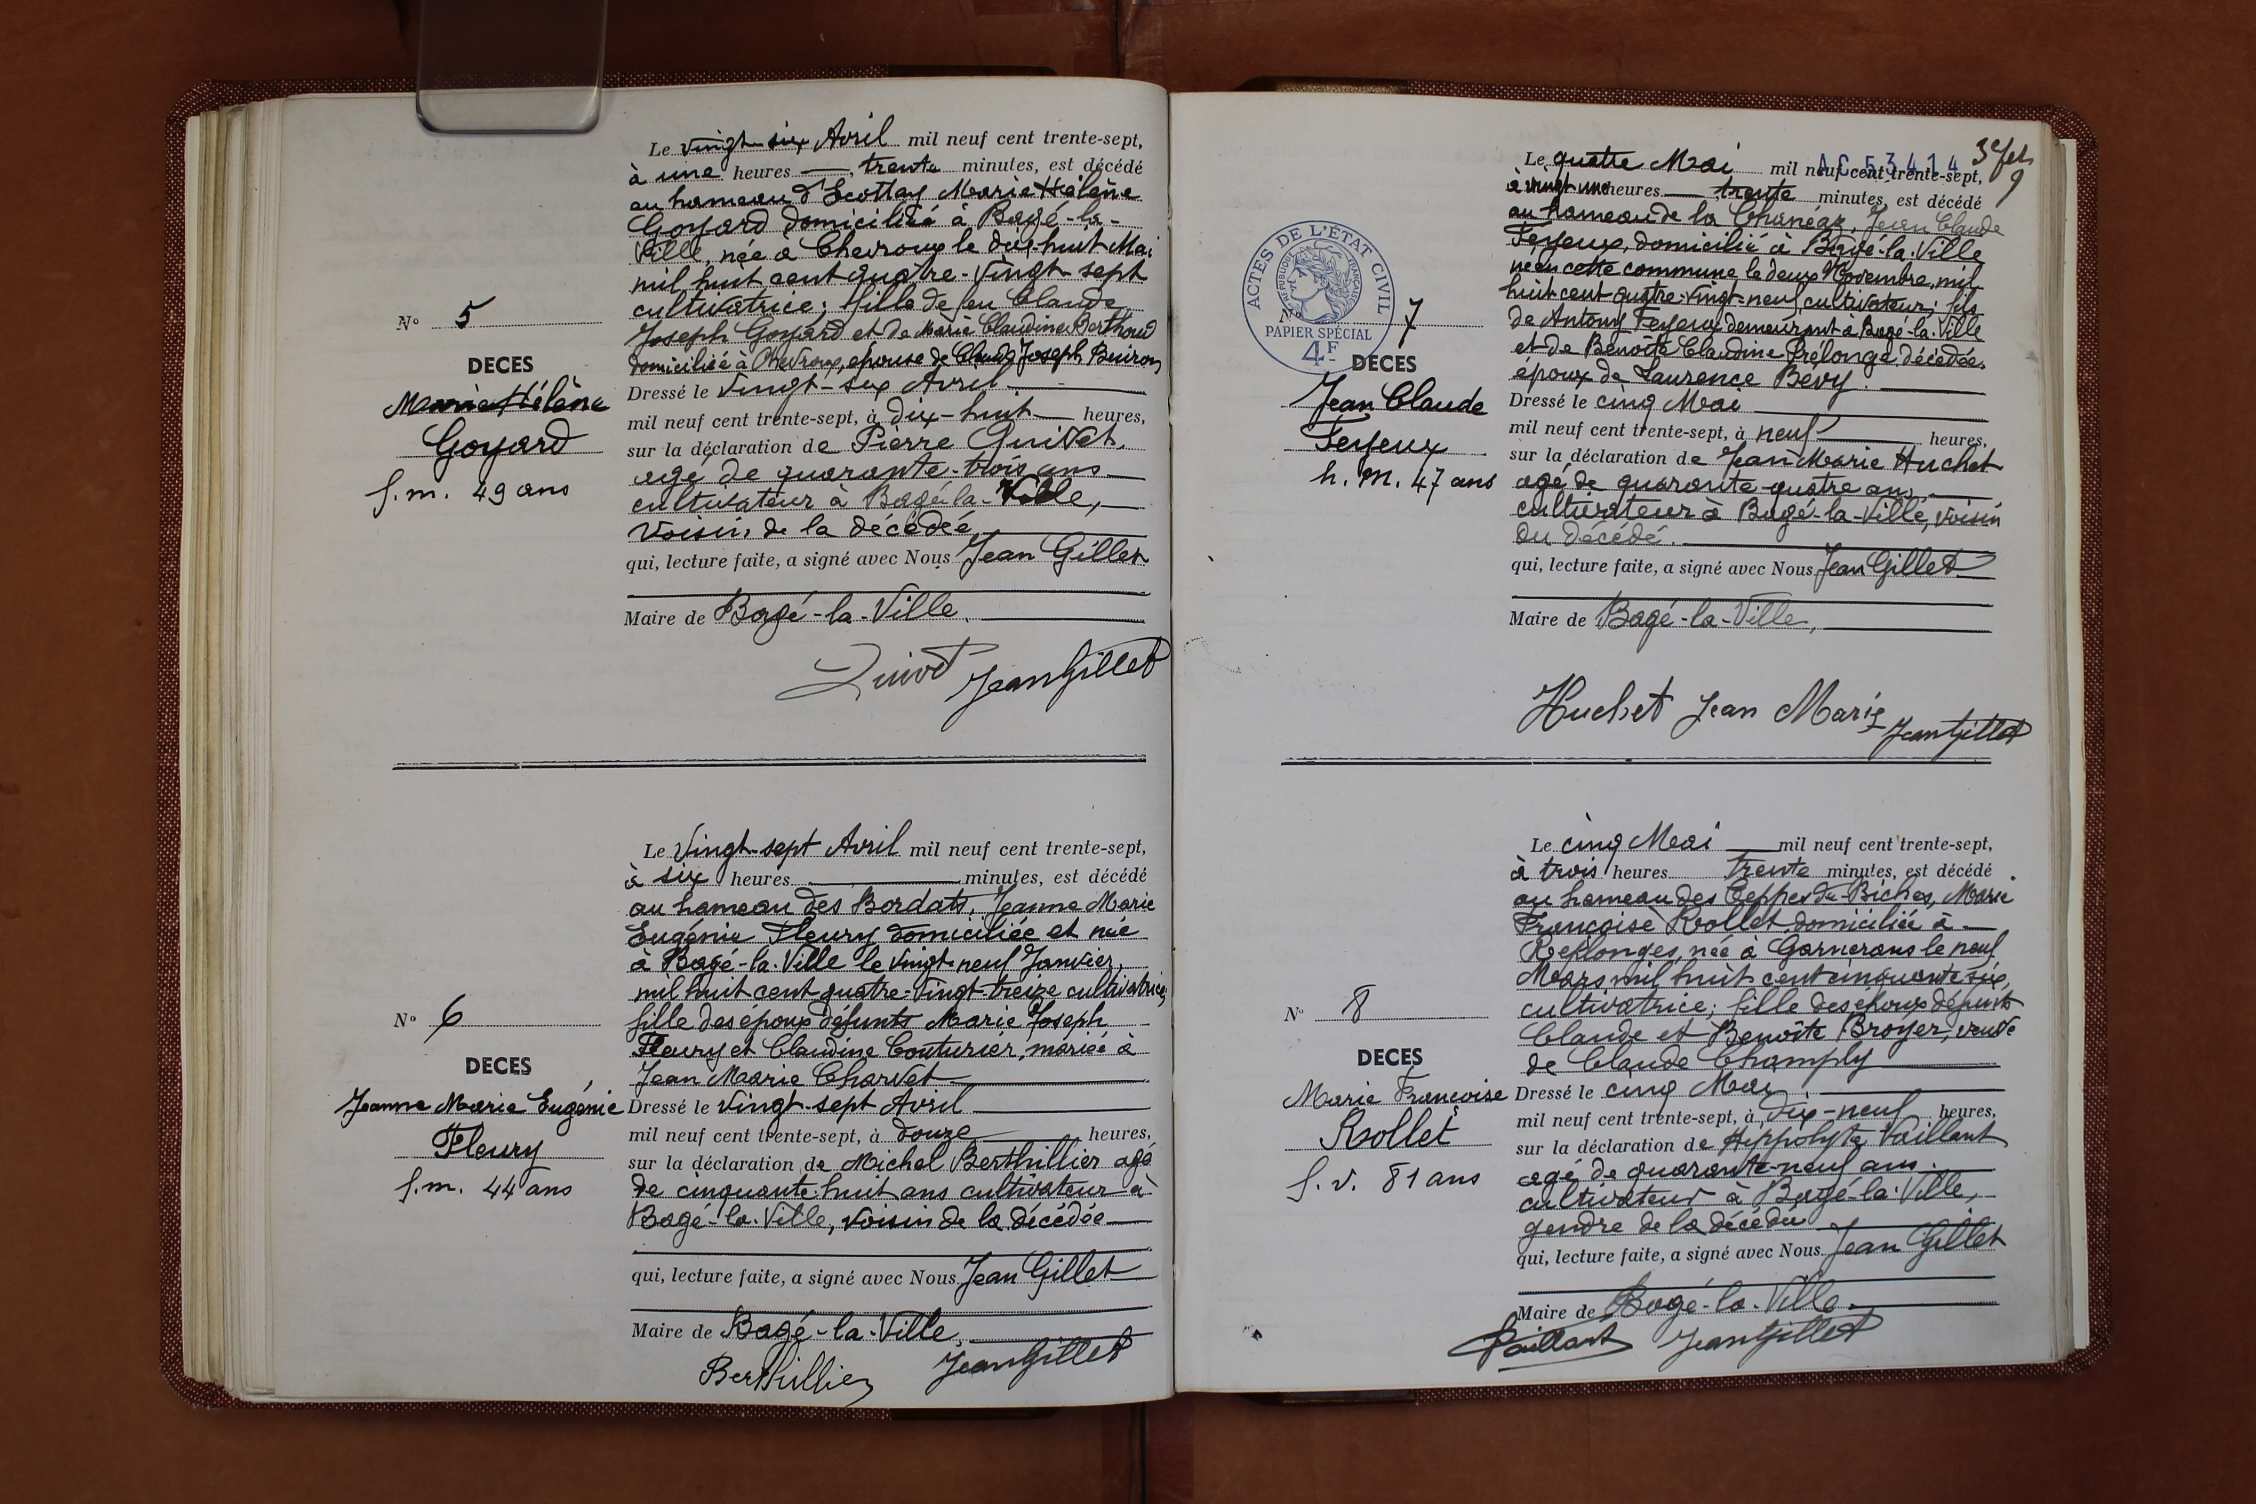 Le vingt-six Avril mil neuf cent trente-sept,
à une heures trente minutes, est décédé
au hameau d'Ecottay Marie Hélène
Goyard domiciliée à Bagé-la-
Ville, née à Chevroux le dix-huit Mai
mil huit cent quatre-vingt-sept
cultivatrice; fille de feu Claude
Joseph Goyard et de Marie Claudine Berthoud
domiciliée à Chevroux, épouse de Claude Joseph Buiron
N° 5
DECES
Marie Hélène
Goyard
f. m. 49 ans
Dressé le vingt-six Avril
mil neuf cent trente-sept, à dix-huit heures,
sur la déclaration de Pierre Quivet
agé de quarante-trois ans
cultivateur à Bagé-la-Ville,
voisin de la décédée
qui, lecture faite, a signé avec Nous Jean Gillet
Maire de Bagé-la-Ville.
Quivet Jean Gillet
Le vingt-sept Avril mil neuf cent trente-sept,
à six heures minutes, est décédé
au hameau des Bordats, Jeanne Marie
Eugénie Fleury domiciliée et née
à Bagé-la-Ville le vingt-neuf Janvier
mil huit cent quatre-vingt-treize cultivatrice;
fille des epoux défunts Marie Joseph
Fleury et Claudine Couturier, mariée à
Jean Marie Charvet
N° 6
DECES
Jeanne Marie Eugénie
Fleury
f. m. 44 ans
Dressé le vingt-sept Avril
mil neuf cent trente-sept, à douze heures,
sur la déclaration de Michel Berthillier agé
de cinquante-huit ans cultivateur à
Bagé-la-Ville, voisin de la décédée
qui, lecture faite, a signé avec Nous Jean Gillet
Maire de Bagé-la-Ville,
Berthillier Jean Gillet
AC 53414
3e fet
9
Le quatre Mai mil neuf cent trente-sept,
à vingt une heures trente minutes, est décédé
au hameau de la Chanéaz, Jean Claude
Feyeux, domicilié à Bagé-la-Ville
né en cette commune le deux Novembre mil
huit cent quatre-vingt-neuf, cultivateur; fils
de Antony Feyeux demeurant à Bagé-la-Ville
et de Benoîte Claudine Prélonge décédée.
epoux de Laurence Bévy.
ACTES DE L'ÉTAT CIVIL
RÉPUBLIQUE FRANÇAISE
PAPIER SPÉCIAL
4F
7
DECES
Jean Claude
Feyeux
h. m. 47 ans
Dressé le cinq Mai
mil neuf cent trente-sept, à neuf heures,
sur la déclaration de Jean Marie Huchet
agé de quarante-quatre ans,
cultivateur à Bagé-la-Ville, voisin
du décédé.
qui, lecture faite, a signé avec Nous Jean Gillet
Maire de Bagé-la-Ville,
Huchet Jean Marie Jean Gillet
Le cinq Mai mil neuf cent trente-sept,
à trois heures trente minutes, est décédé
au hameau des Teppes de Biches, Marie
Françoise Rollet domiciliée à
Replonges, née à Garnerans le neuf
Mars mil huit cent cinquante-six,
cultivatrice; fille des epoux défunts
Claude et Benoîte Broyer, veuve
de Claude Champly
N° 8
DECES
Marie Françoise
Rollet
f. v. 81 ans
Dressé le cinq Mai
mil neuf cent trente-sept, à dix-neuf heures,
sur la déclaration de Hippolyte Vaillant
agé de quarante-neuf ans
cultivateur à Bagé-la-Ville,
gendre de la décédée
qui, lecture faite, a signé avec Nous Jean Gillet
Maire de Bagé-la-Ville.
Vaillant Jean Gillet